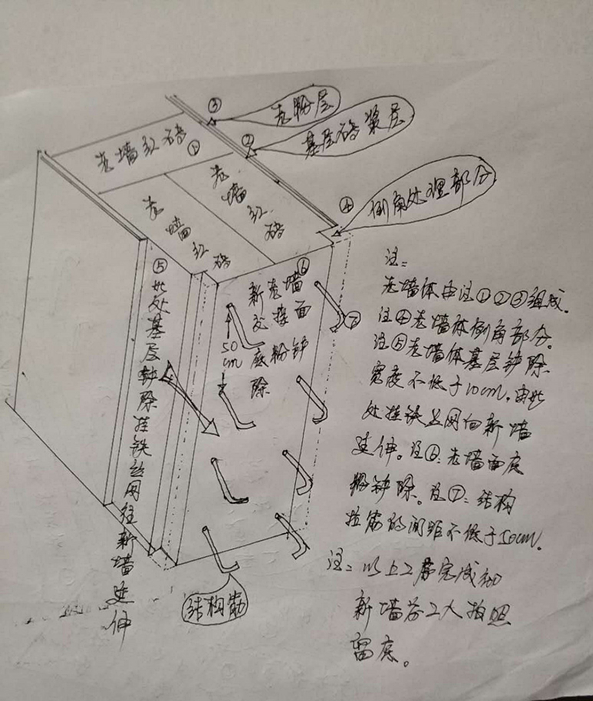 ③
老粉层
②
基层砖浆层
①
老墙红砖
老墙红砖
老墙红砖
④
倒角处理部分
⑤此处基层铲除挂铁丝网往新墙延伸
⑥
新老墙交接面底粉铲除
50cm
⑦
结构筋
注：
老墙体由注①②③组成.
注④老墙体倒角部分.
注⑤老墙体基层铲除
宽度不低于10cm.由此
处挂铁丝网向新墙
延伸。注⑥:老墙面底
粉铲除。注⑦:结构
拉筋的间距不低于50cm.
注:以上工序完成和
新墙各工人拍照
留底。